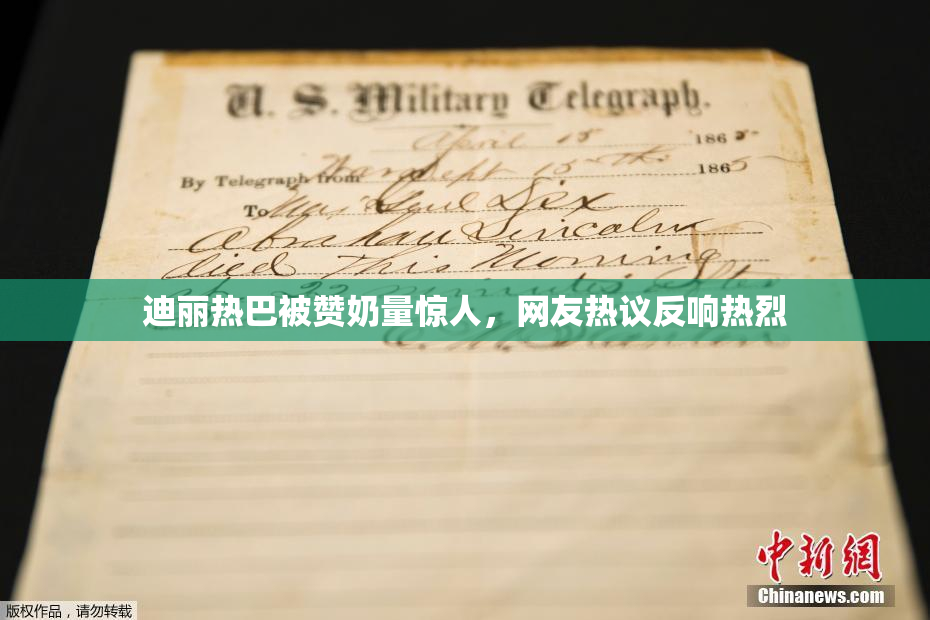 U. S. Military Telegraph.
April 15 1865
By Telegraph from War Dept 15th 1865
To Maj Genl Dix
Abraham Lincoln
died This Morning
at 22 minutes after
迪丽热巴被赞奶量惊人，网友热议反响热烈
E. M. Stanton
中新网
Chinanews.com
版权作品，请勿转载